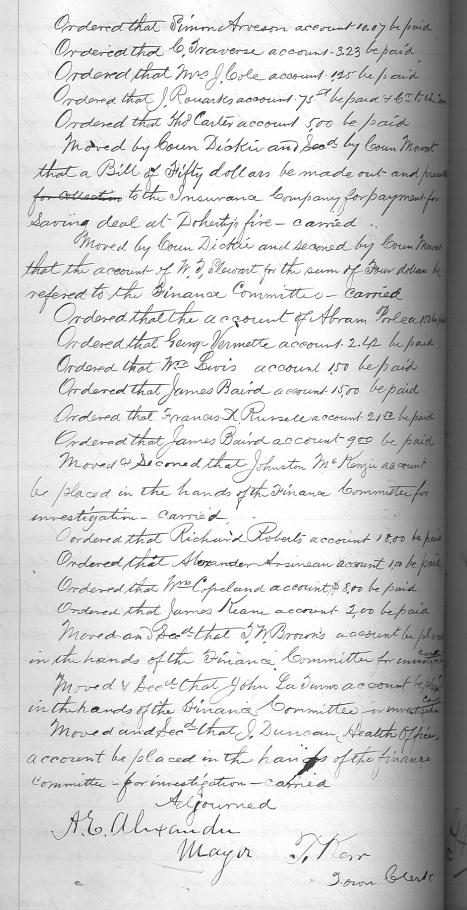 Ordered that Simon Arveson account 10.07 be paid
Ordered that C. Traverse account 3.23 be paid
Ordered that Mrs J. Cole account 1.25 be paid
Ordered that J. account 75 be paid
Ordered that Thos Carter account 5.00 be paid
Moved by Coun Dickie and Secd by Coun Mowat
that a Bill of Fifty dollars be made out and
for collection to the Insurance Company for payment for
Saving deal at Doherty's fire – carried
Moved by Coun Dickie and seconed by Coun Mowat
that the account of W. F. Stewart for the sum of Four dollars be
refered to the Finance Committee – carried
Ordered that the account of Abram
Ordered that George Vermette account 2.42 be paid
Ordered that Wm Lewis account 1.50 be paid
Ordered that James Baird account 15.00 be paid
Ordered that Francis X Russell account 21 be paid
Ordered that James Baird account 9.00 be paid
Moved & Seconed that Johnston McKenzie account
be placed in the hands of the Finance Committee for
investigation – carried
Oordered that Richard Roberts account 18.00 be paid
Ordered that Alexander Arsineau account 1.00 be paid
Ordered that Wm Copeland account $8.00 be paid
Ordered that James Keane account 2,00 be paid
Moved and Secd that T. W. Brown's account be
in the hands of the Finance Committee for
Moved & Secd that John account be
in the hands of the Finance Committee
Moved and Secd that J. Duncan, Health Officer
account be placed in the hands of the finance
Committee – for investigation – carried
Adjourned
A. E. Alexander
Mayor T. Kerr
Town Clerk